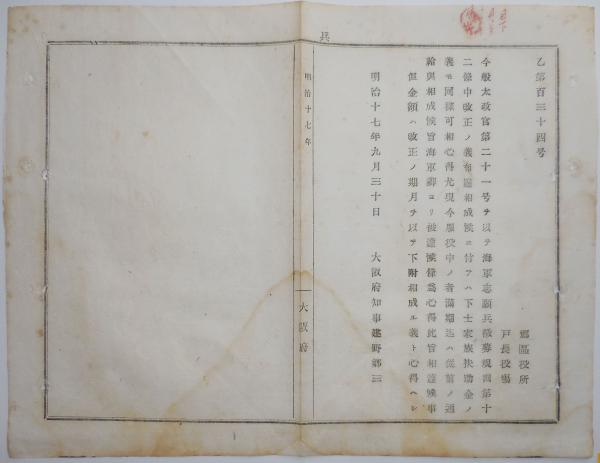 乙第百三十四号
郡區役所
戸長役場
今般太政官第二十一号ヲ以テ海軍志願兵徴募規則第十
二條中改正ノ義布達相成候ニ付テハ下士家族扶助金ノ
義モ同樣可相心得尤現今服役中ノ者滿期迄ハ従前ノ通
給與相成候旨海軍卿ヨリ被達候條為心得此旨相達候事
但金額ハ改正ノ期月ヲ以テ下附相成ル義ト心得ヘシ
明治十七年九月三十日
大阪府知事建野郷三
兵
明治十七年
大阪府